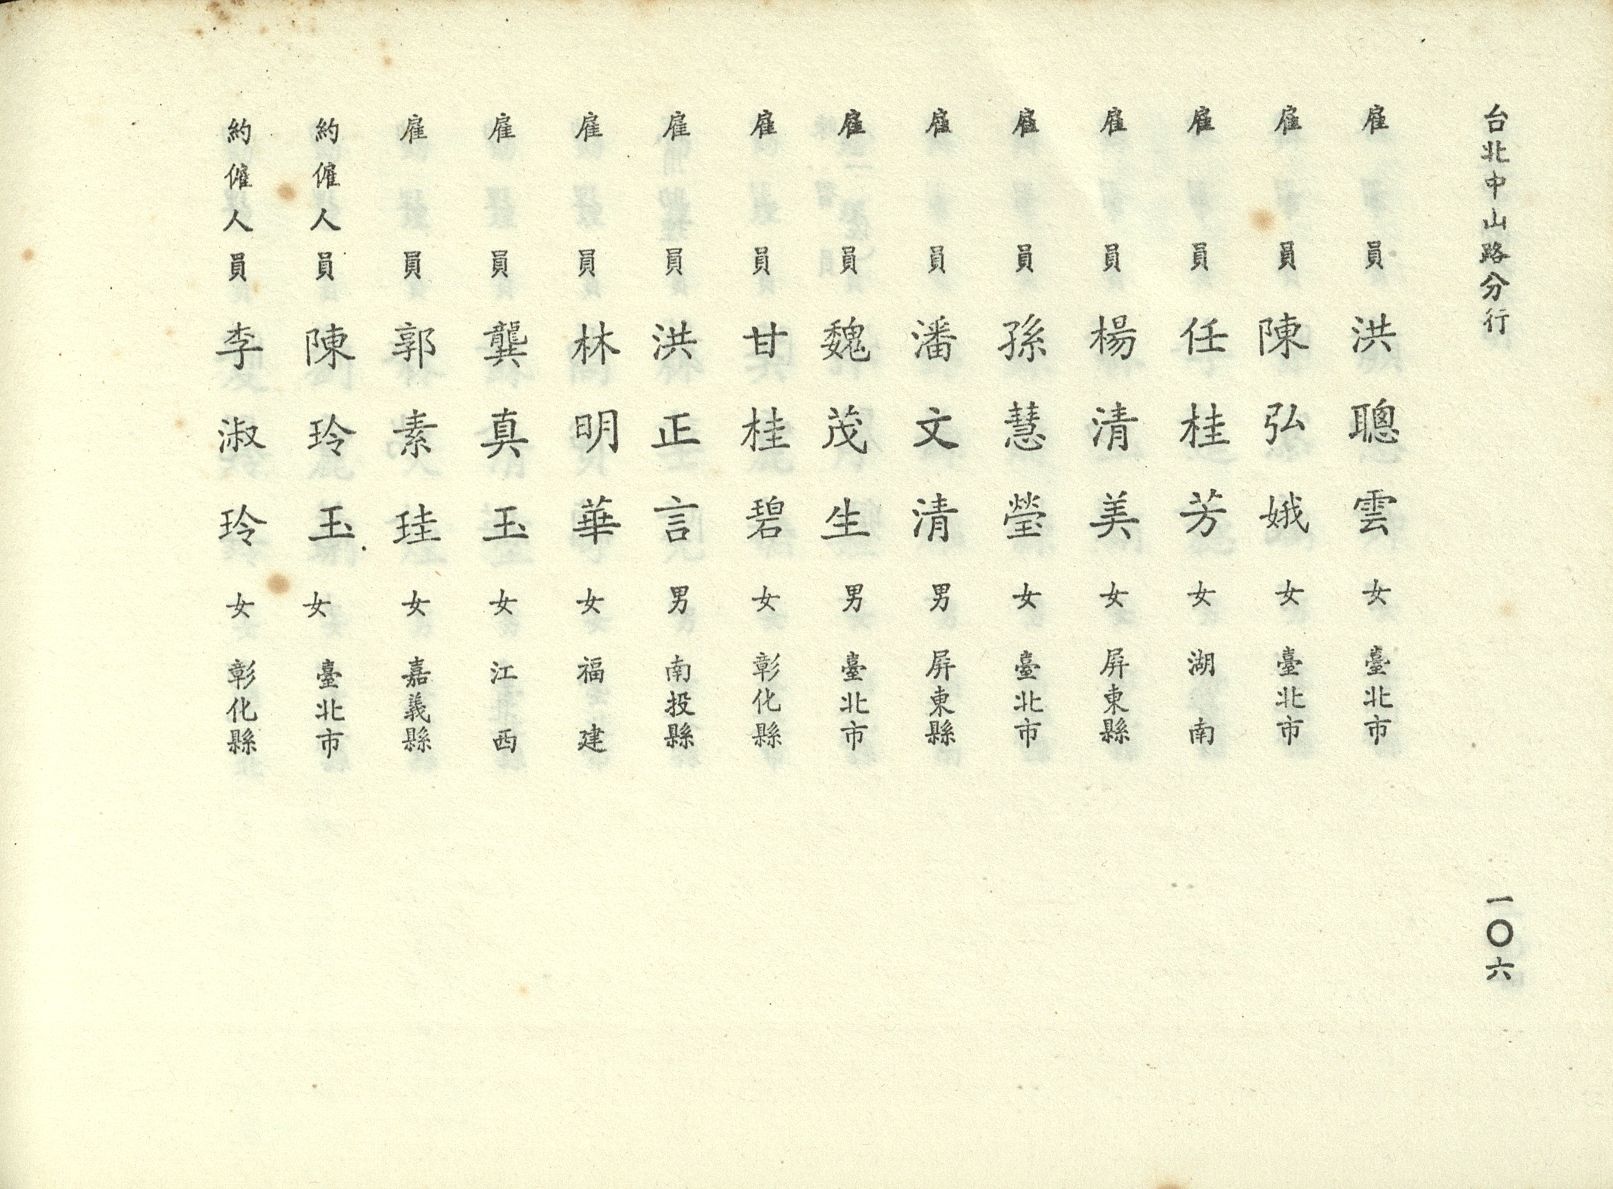 台北中山路分行
一〇六
雇員 洪聰雲 女 臺北市
雇員 陳弘娥 女 臺北市
雇員 任桂芳 女 湖南
雇員 楊清美 女 屏東縣
雇員 孫慧瑩 女 臺北市
雇員 潘文清 男 屏東縣
雇員 魏茂生 男 臺北市
雇員 甘桂碧 女 彰化縣
雇員 洪正言 男 南投縣
雇員 林明華 女 福建
雇員 龔真玉 女 江西
雇員 郭素珪 女 嘉義縣
約僱人員 陳玲玉 女 臺北市
約僱人員 李淑玲 女 彰化縣